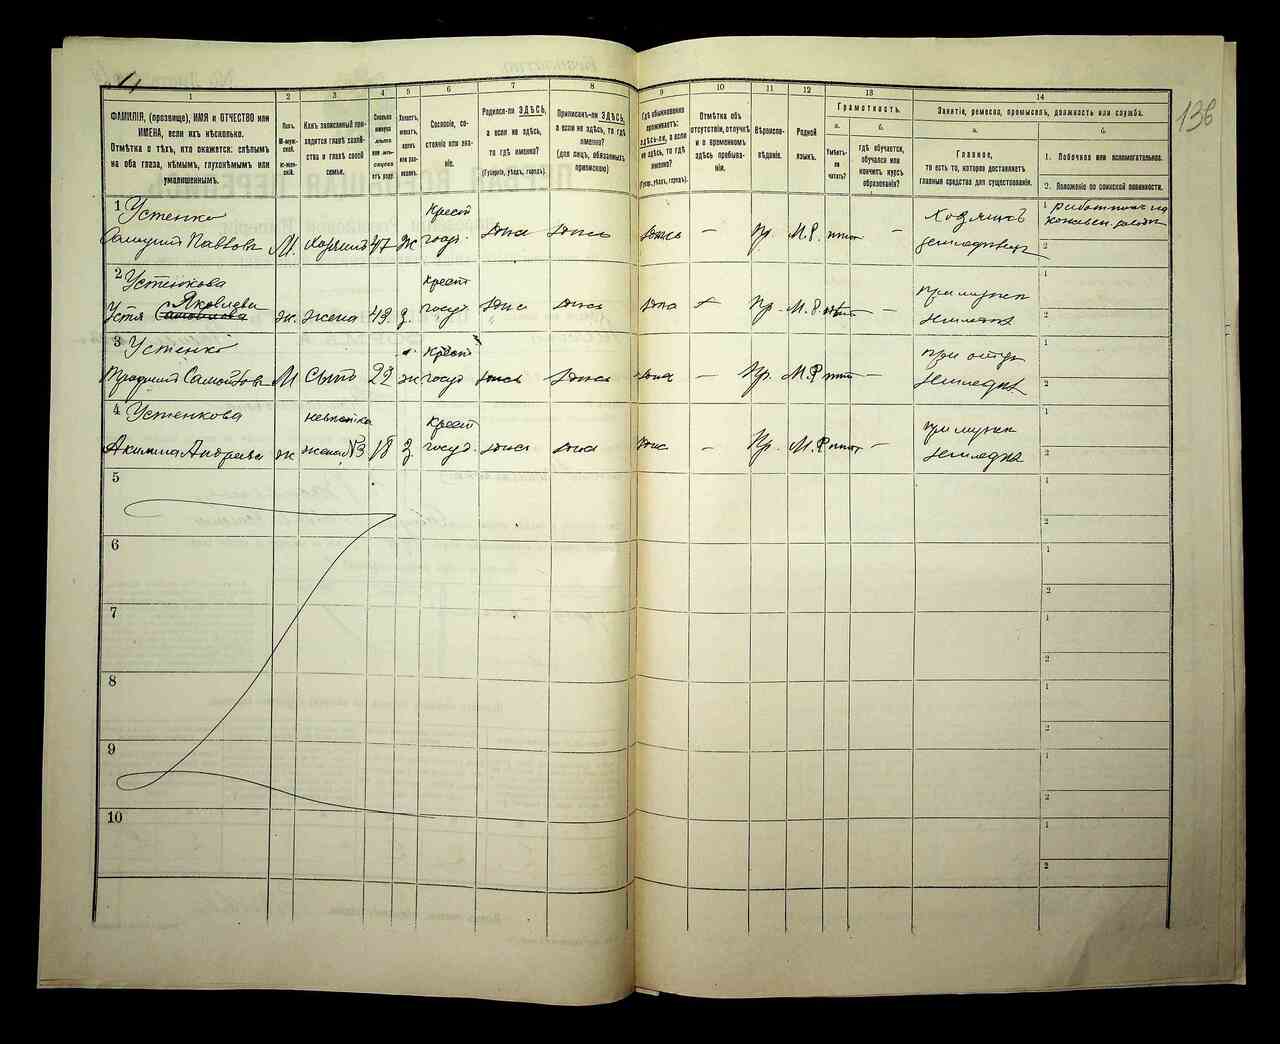 136
1
ФАМИЛІЯ, (прозвище), ИМЯ и ОТЧЕСТВО или
ИМЕНА, если ихъ нѣсколько.
Отмѣтка о тѣхъ, кто окажется: слѣпымъ
на оба глаза, нѣмымъ, глухонѣмымъ или
умалишеннымъ.
2
Полъ.
М-муж-
ской.
Ж-жен-
скій.
3
Какъ записанный при-
ходится главѣ хозяй-
ства и главѣ своей
семьи.
4
Сколько
минуло
лѣтъ
или мѣ-
сяцевъ
отъ роду.
5
Холостъ,
женатъ,
вдовъ
или раз-
веденъ.
6
Сословіе, со-
стояніе или зва-
ніе.
7
Родился-ли ЗДѢСЬ,
а если не здѣсь,
то гдѣ именно?
(Губернія, уѣздъ, городъ).
8
Приписанъ-ли ЗДѢСЬ,
а если не здѣсь, то гдѣ
именно?
(для лицъ, обязанныхъ
припиской)
9
Гдѣ обыкновенно
проживаетъ:
здѣсь-ли, а если
не здѣсь, то гдѣ
именно?
(Губ., уѣздъ, городъ).
10
Отмѣтка объ
отсутствіи, отлучкѣ
и о временномъ
здѣсь пребыва-
ніи.
11
Вѣроиспо-
вѣданіе.
12
Родной
языкъ.
13
Грамотность.
а.
Умѣетъ-ли
читать?
б.
гдѣ обучается,
обучался или
кончилъ курсъ
образованія?
14
Занятіе, ремесло, промыселъ, должность или служба.
а.
Главное,
то есть то, которое доставляетъ
главныя средства для существованія.
б.
1. Побочное или вспомогательное.
2. Положеніе по воинской повинности.
1 Устенко
Павловъ М. хозяинъ 47 ж Крест госуд. здѣсь здѣсь здѣсь — Пр. М.Р. нѣтъ —
1
2
2 Устенкова
Яковлева
Устя ж. жена 49 з. Крест госуд. здѣсь здѣсь здѣсь Пр. М.Р. нѣтъ —
1
2
3 Устенко
М сынъ 22 ж Крест госуд здѣсь здѣсь здѣсь — Пр. М.Р нѣтъ —
1
2
4 Устенкова
невѣстка
Акилина Андреева ж жена №3 18 з. Крест госуд. здѣсь здѣсь здѣсь — Пр. М.Р нѣтъ —
1
2
5
1
2
6
1
2
7
1
2
8
1
2
9
1
2
10
1
2